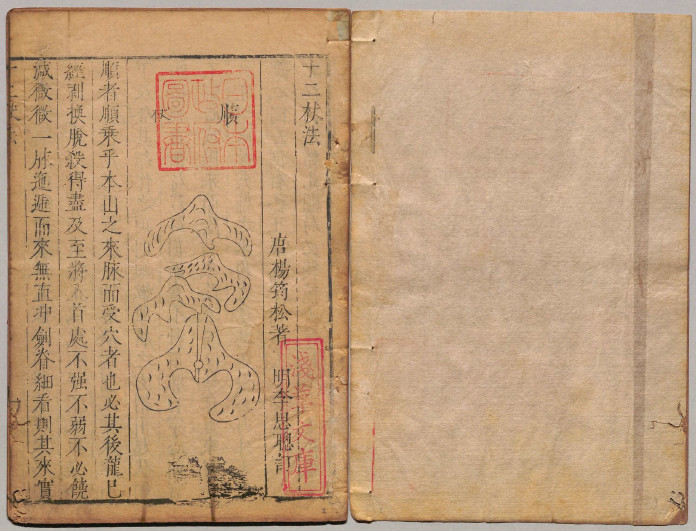 十二杖法
唐楊筠松著　明李思聰訂
順杖
順者順乘乎本山之來脉而受穴者也必其後龍已
經剝換脫殺得盡及至將入首處不强不弱不必饒
减微微一脉迤邐而來無直冲劍脊細看則其來實
日本
政府
圖書
淺草文庫